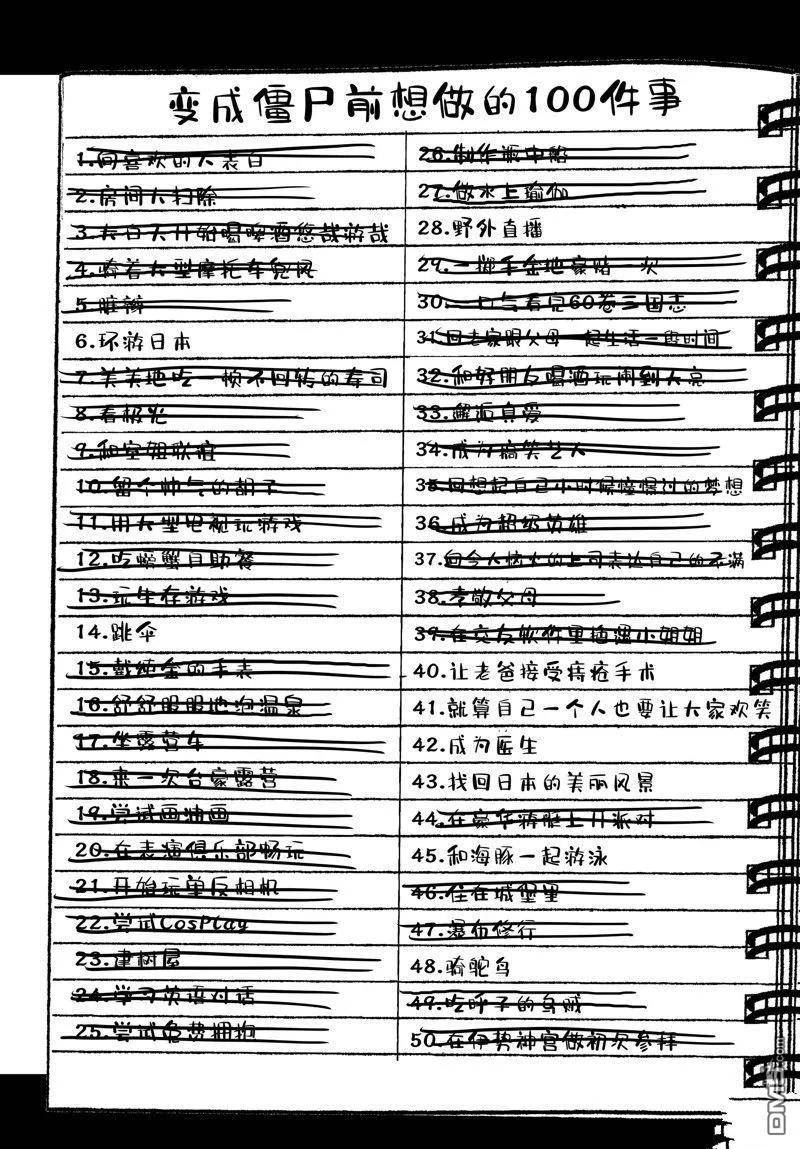 变成僵尸前想做的100件事
1.向喜欢的人表白
2.房间大扫除
3.大白天开始喝啤酒悠哉游哉
4.骑着大型摩托车兜风
5.脏辫
6.环游日本
7.美美地吃一顿不回转的寿司
8.看极光
9.和空姐联谊
10.留个帅气的胡子
11.用大型电视玩游戏
12.吃螃蟹自助餐
13.玩生存游戏
14.跳伞
15.戴纯金的手表
16.舒舒服服地泡温泉
17.坐露营车
18.来一次台豪露营
19.尝试画油画
20.在表演俱乐部畅玩
21.开始玩单反相机
22.尝试CosPlay
23.建树屋
24.学习英语对话
25.尝试免费拥抱
26.制作瓶中船
27.做水上瑜伽
28.野外直播
29.一掷千金地豪赌一次
30.一口气看完60卷三国志
31.回老家跟父母一起生活一段时间
32.和好朋友喝酒玩闹到天亮
33.邂逅真爱
34.成为搞笑艺人
35.回想起自己小时候憧憬过的梦想
36.成为超级英雄
37.向令人恼火的上司表达自己的不满
38.孝敬父母
39.在交友软件里插遇小姐姐
40.让老爸接受痔疮手术
41.就算自己一个人也要让大家欢笑
42.成为医生
43.找回日本的美丽风景
44.在豪华游艇上开派对
45.和海豚一起游泳
46.住在城堡里
47.瀑布修行
48.骑鸵鸟
49.吃呼子的乌贼
50.在伊势神宫做初次参拜